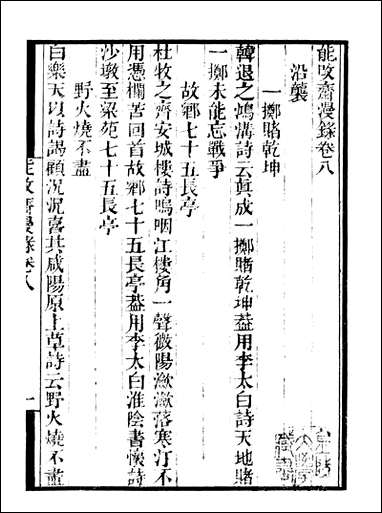 能改齋漫錄卷八
沿襲
一擲賭乾坤
韓退之鴻溝詩云眞成一擲賭乾坤葢用李太白詩天地賭
一擲未能忘戰爭
故鄉七十五長亭
杜牧之齊安城樓詩嗚咽江樓角一聲微陽瀲瀲落寒汀不
用憑欄苦回首故鄉七十五長亭葢用李太白淮陰書懷詩
沙墩至梁苑七十五長亭
野火燒不盡
白樂天以詩謁顧况况喜其咸陽原上草詩云野火燒不盡
能改齋漫錄卷八
一